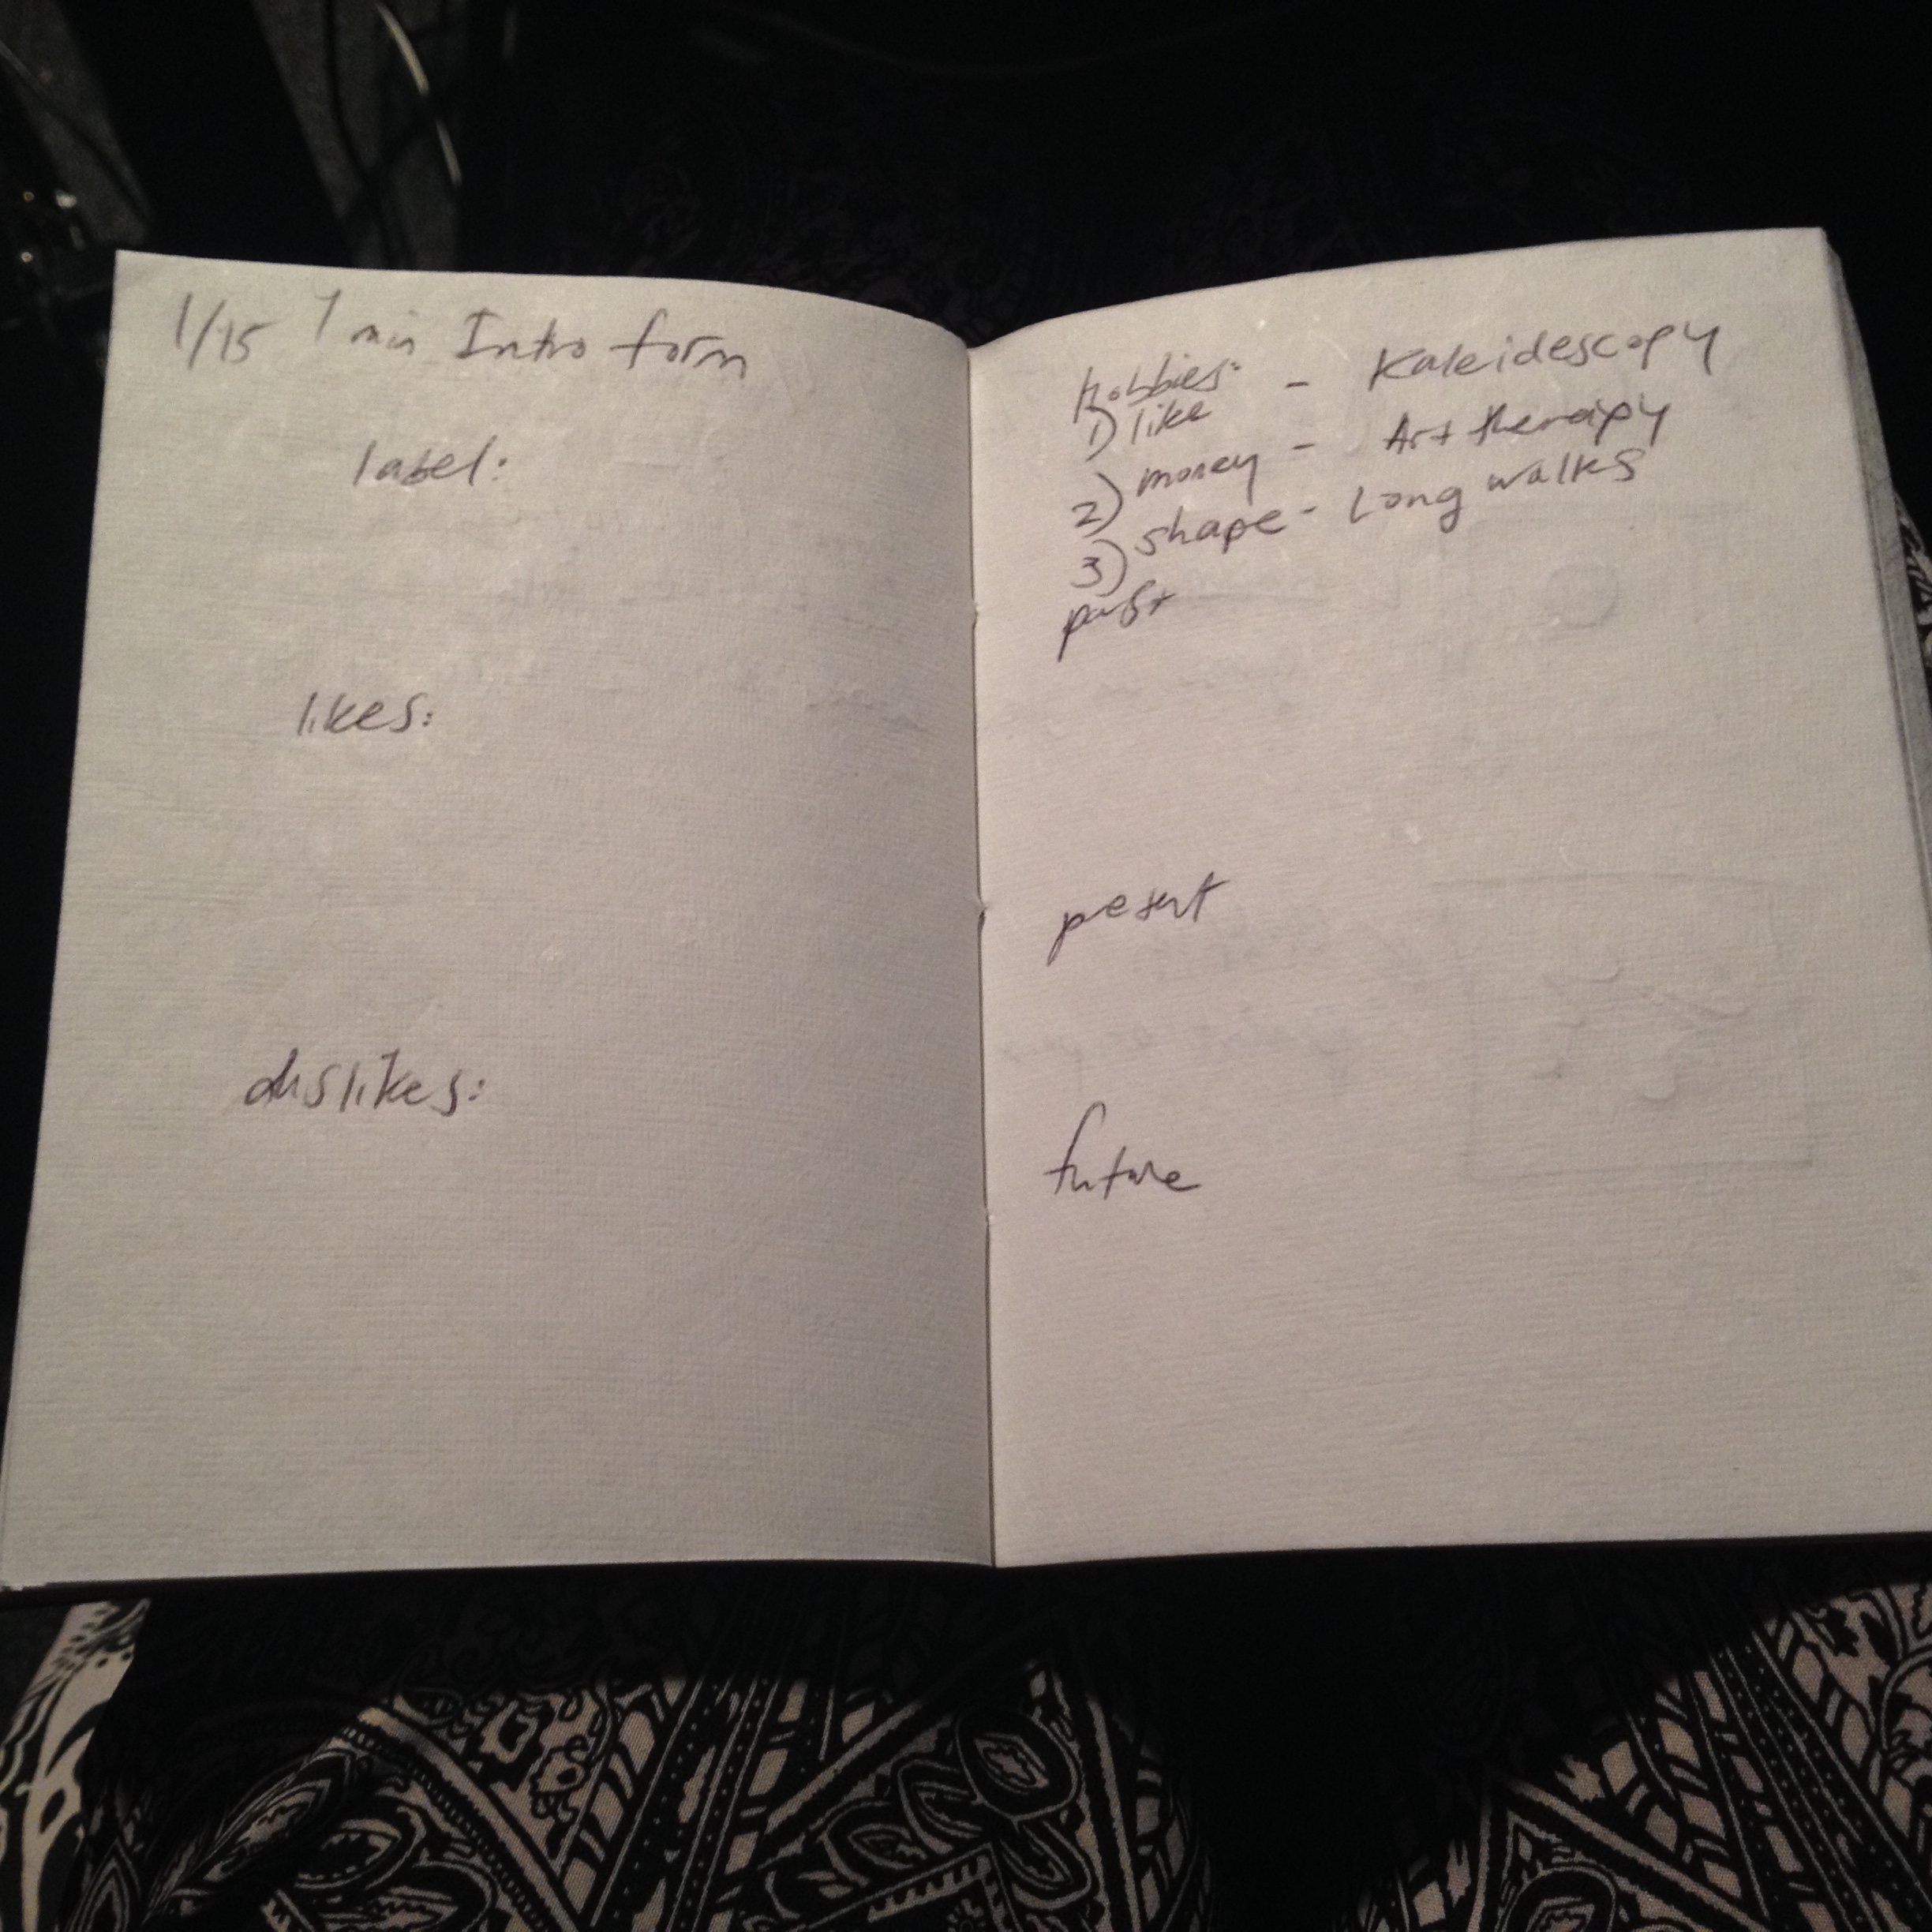 1/15 1 min Intro form
label:
likes:
dislikes:
hobbies:
1) like - Kaleidescopy
2) money - Art therapy
3) shape - Long walks
past
present
future